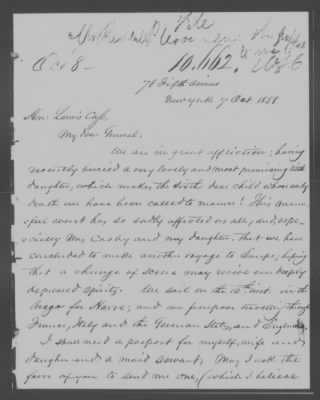 File
Oct 8 -
10.662.
78 Fifth Avenue
New York 7 Oct 1858
Hon: Lewis Cass,
My dear General,
We are in great affliction; having
recently buried a very lovely and most promising
daughter, which makes the sixth dear child whose early
death we have been called to mourn! This mourn-
ful event has so sadly affected us all; and, espe-
cially Mrs and my daughter, that we have
concluded to make another voyage to Europe; hoping
that a change of scene may revive our deeply
depressed spirits. We sail on the inst. in the
Arago for Havre; and we purpose through
France, Italy and the German States, and England.
I shall need a passport for myself, wife and
daughter and a maid servant. May I ask the
favor of you to send me one, (which I believe